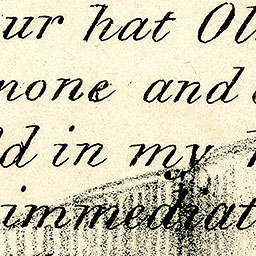 ur hat Ol
none and
ld in my
immediat